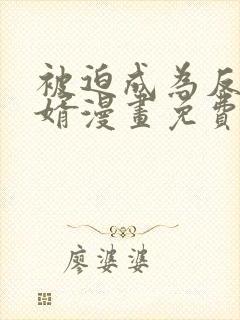 被迫成為反
婿漫畫免費
廖婆婆